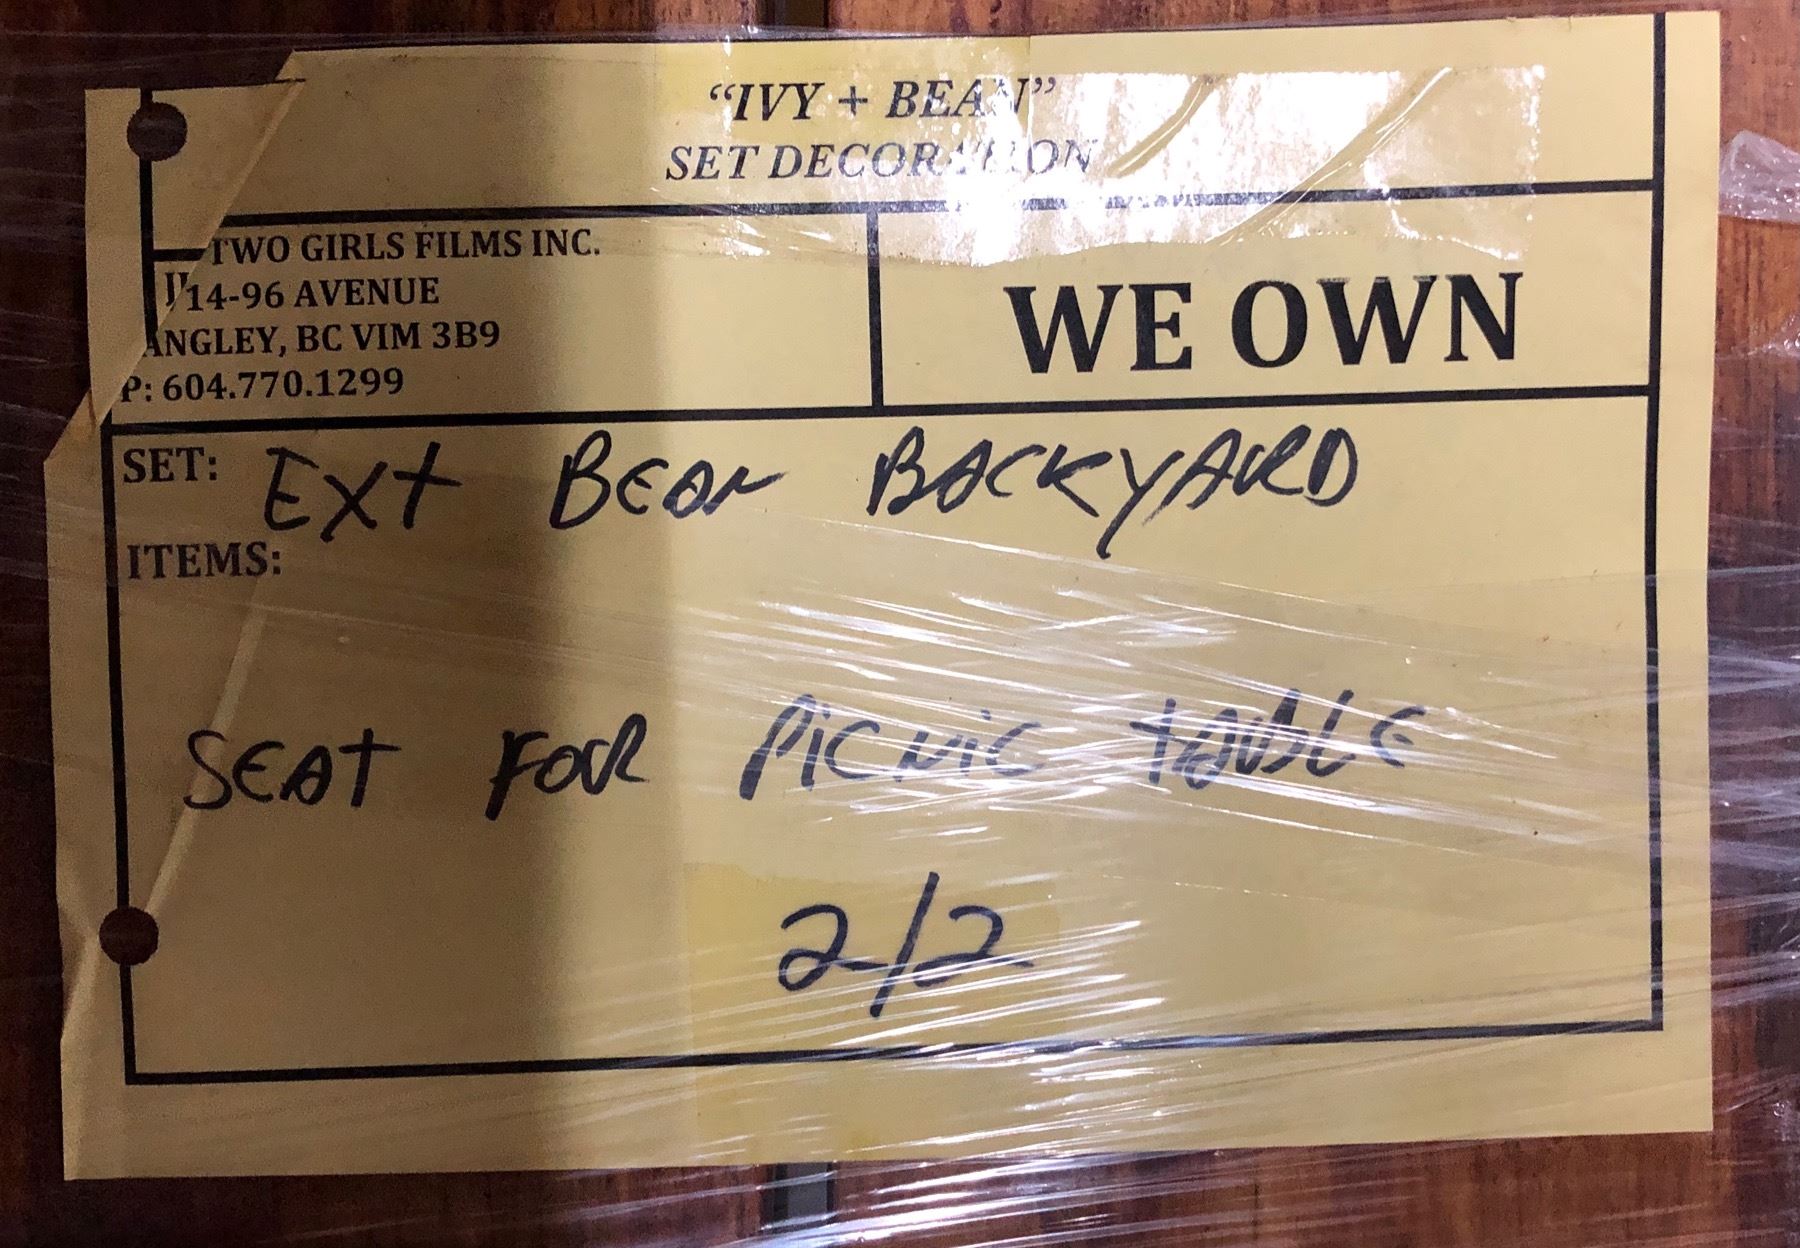 “IVY + BEAN”
SET DECORATION
TWO GIRLS FILMS INC.
14-96 AVENUE
ANGLEY, BC VIM 3B9
P: 604.770.1299
WE OWN
SET: EXt BEAN BACKYARD
ITEMS:
SEAT FOR PiCNiC tABLE
2/2